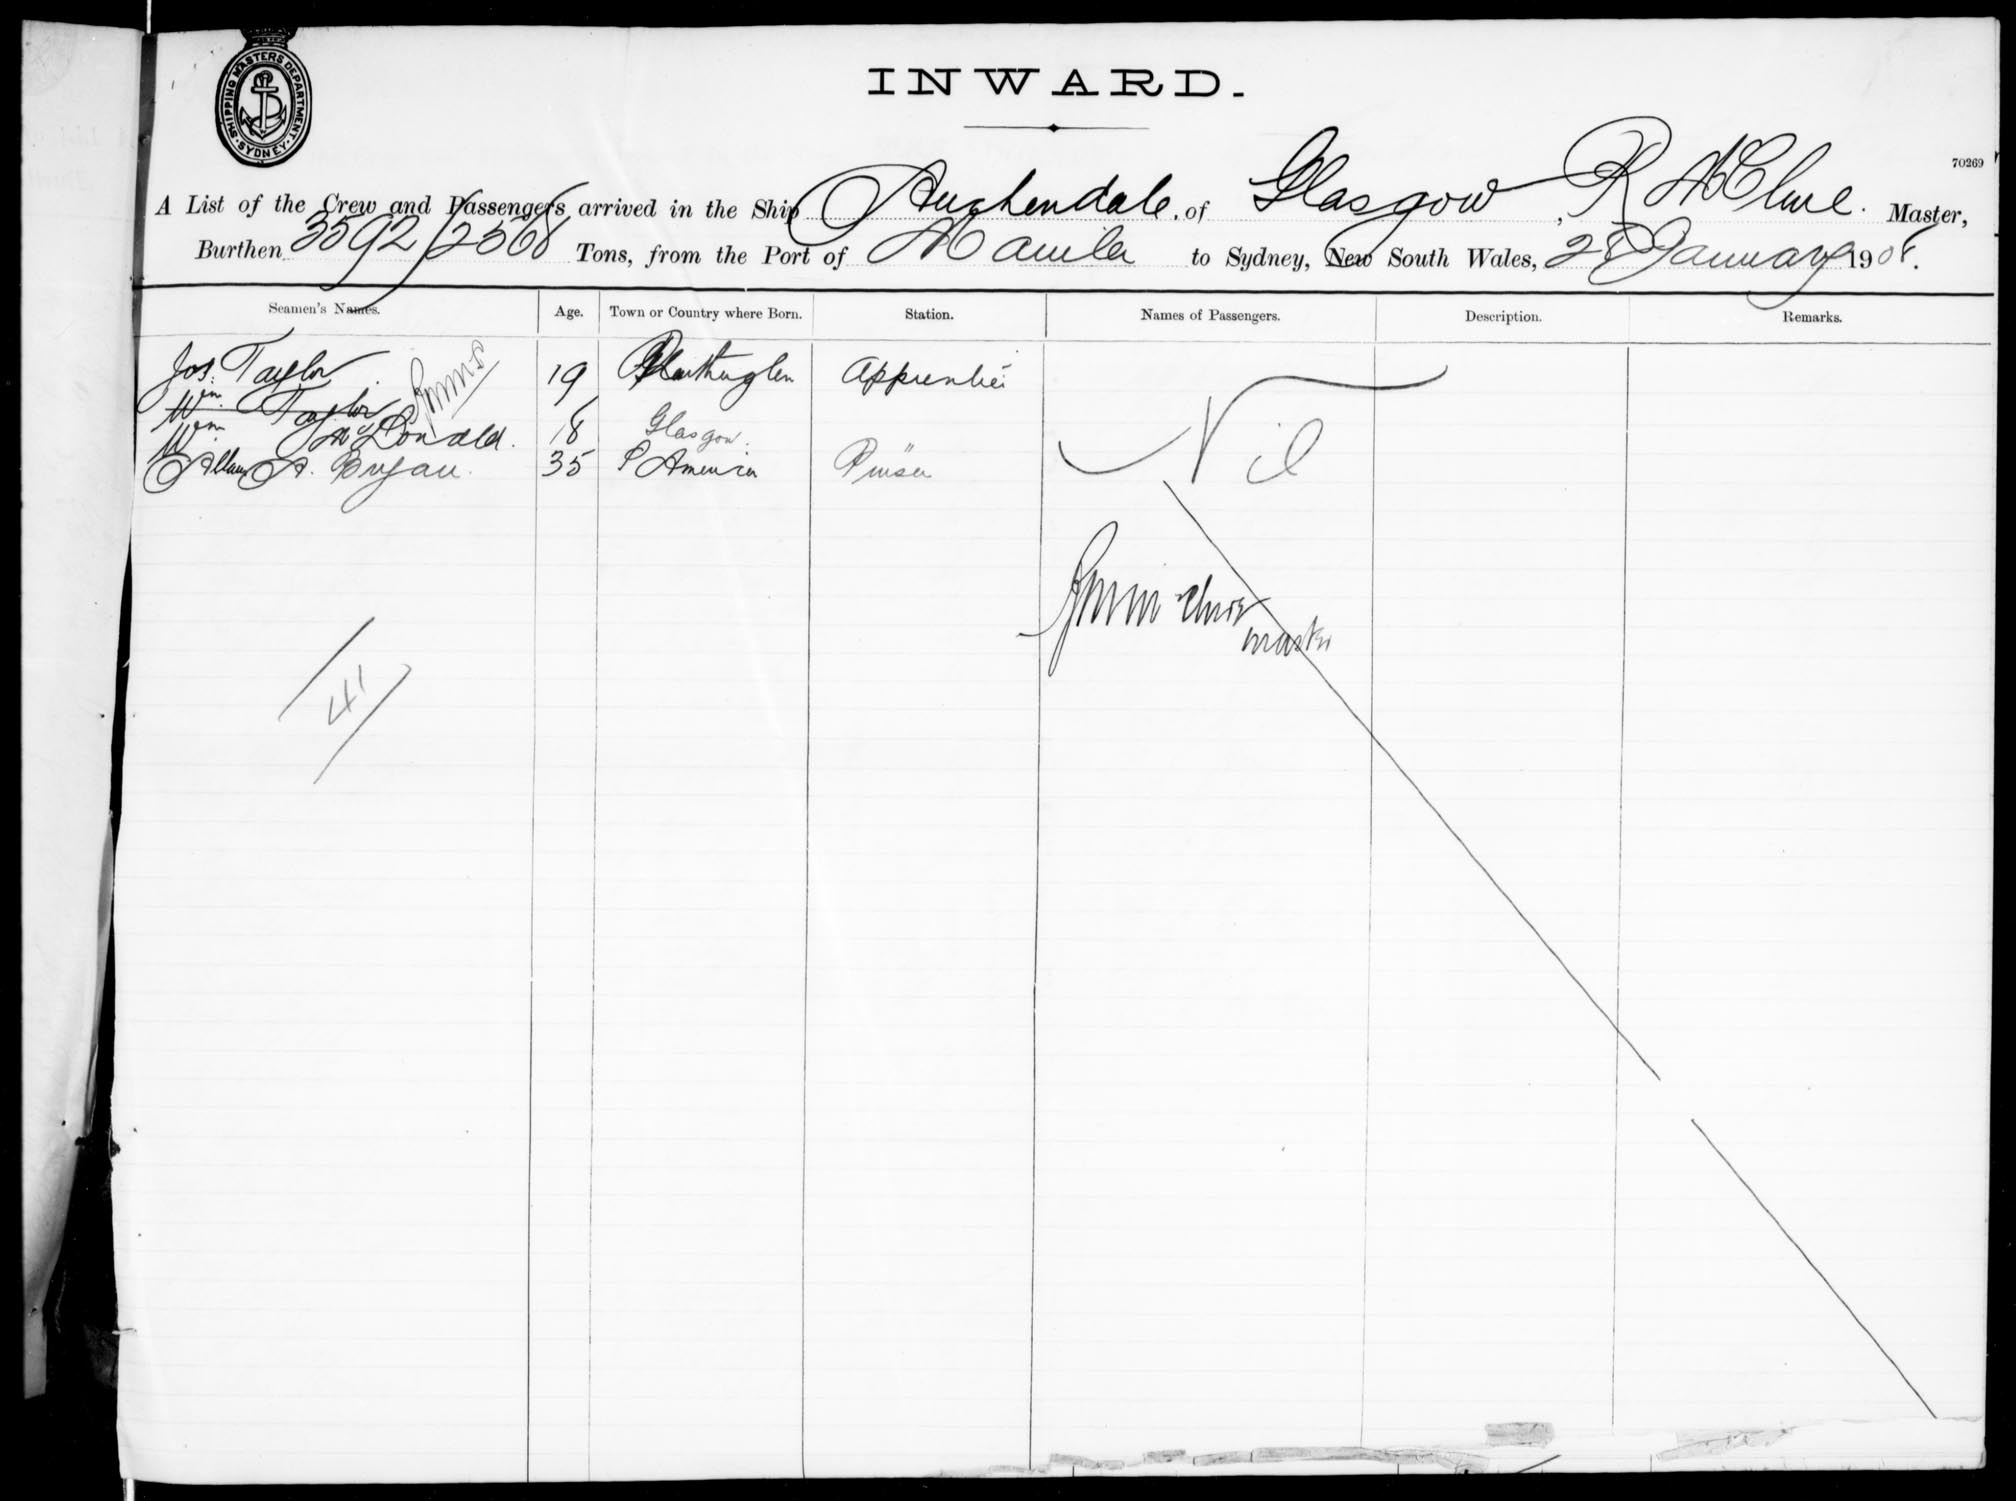 SHIPPING MASTERS DEPARTMENT.
SYDNEY
INWARD.
70269
A List of the Crew and Passengers arrived in the Ship Auchendale, of Glasgow, R McClure. Master,
Burthen 3592/2568 Tons, from the Port of Manila to Sydney, New South Wales, 28 January 1908.
Seamen's Names. Age. Town or Country where Born. Station. Names of Passengers. Description. Remarks.
Jos. Taylor 19 Apprentice
Wm. Taylor
Wm McDonald. 18 Glasgow. "
A. Bryan. 35 S America Purser
Nil
master
41